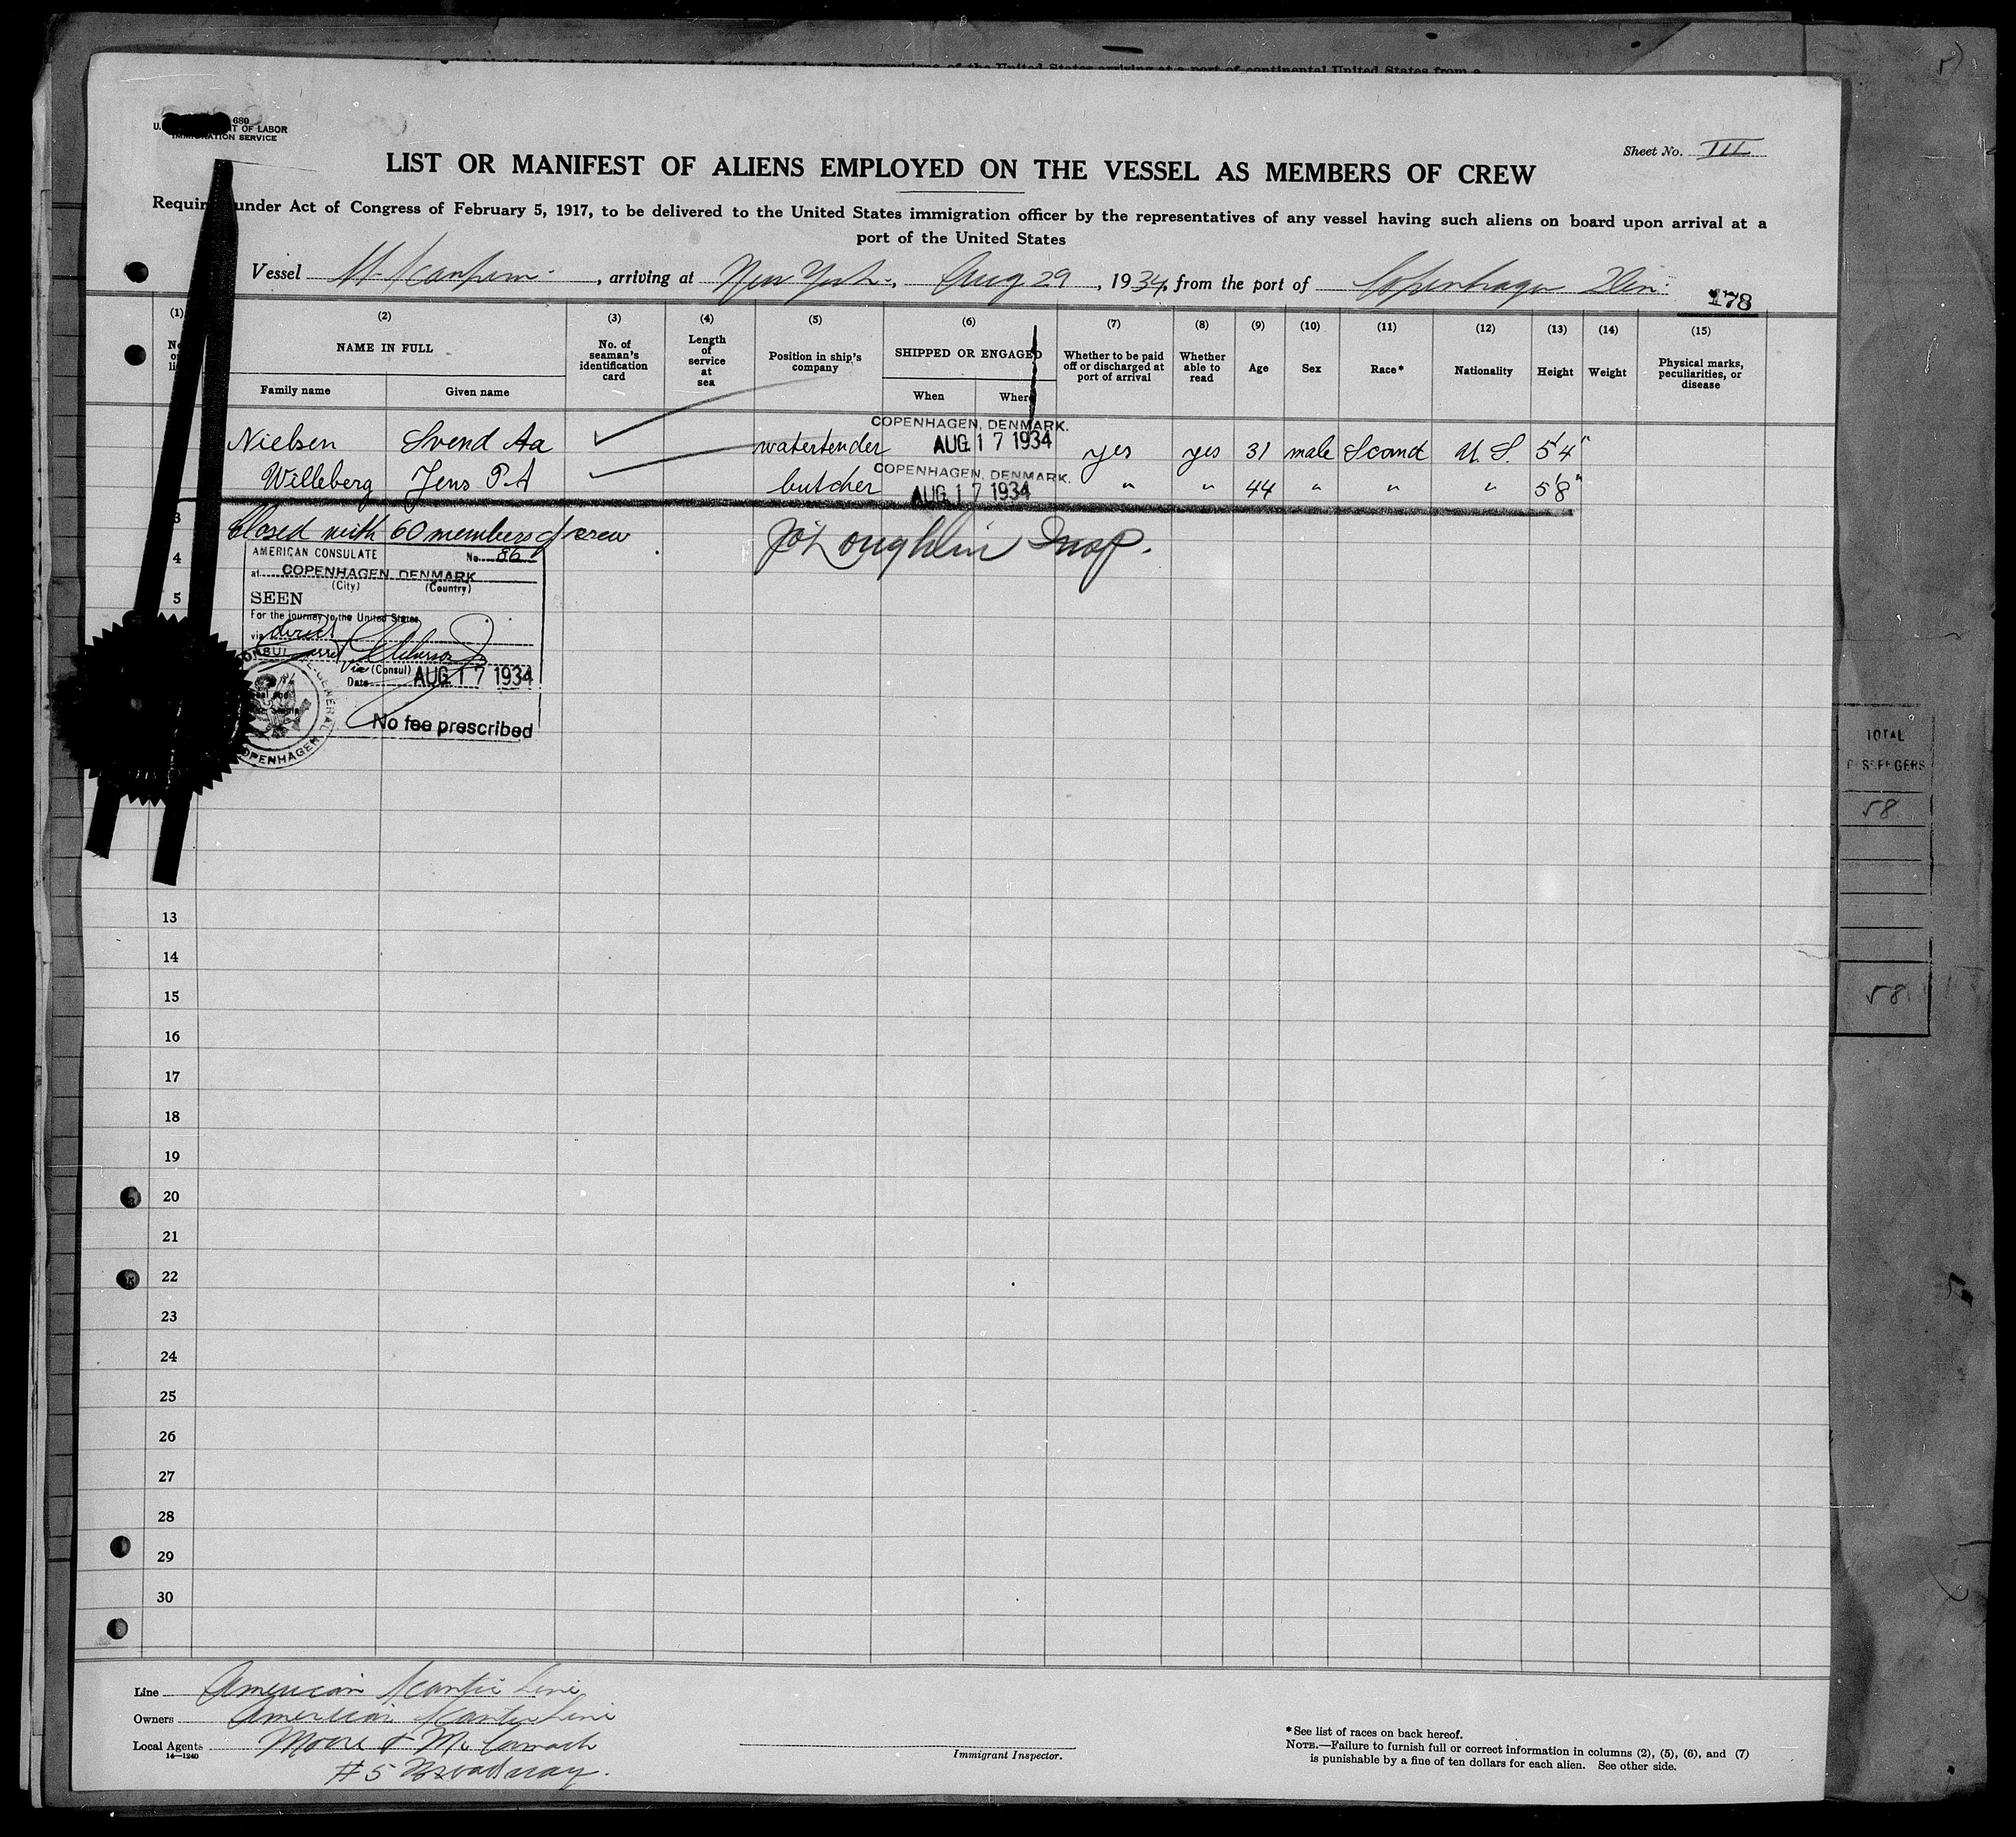 680
OF LABOR
IMMIGRATION SERVICE
Sheet No. III
LIST OR MANIFEST OF ALIENS EMPLOYED ON THE VESSEL AS MEMBERS OF CREW
under Act of Congress of February 5, 1917, to be delivered to the United States immigration officer by the representatives of any vessel having such aliens on board upon arrival at a
port of the United States
Vessel , arriving at New York, Aug 29, 1934, from the port of Copenhagen Den.
178
(1) (2) (3) (4) (5) (6) (7) (8) (9) (10) (11) (12) (13) (14) (15)
NAME IN FULL
Family name Given name
No. of seaman's identification card
Length of service at sea
Position in ship's company
SHIPPED OR ENGAGED
When Where
Whether to be paid off or discharged at port of arrival
Whether able to read
Age Sex Race* Nationality Height Weight
Physical marks, peculiarities, or disease
COPENHAGEN, DENMARK.
Nielsen Svend Aa watertender AUG 17 1934 yes yes 31 male Scand U.S. 5'4"
COPENHAGEN, DENMARK.
Willeberg Jens P.A butcher AUG 17 1934 " " 44 " " " 5'8"
3 Closed with 60 members of crew
J O'Loughlin Insp.
4
5
AMERICAN CONSULATE No. 86
at COPENHAGEN, DENMARK
(City) (Country)
SEEN
For the journey to the United States
via direct
Vice (Consul)
Date AUG 17 1934
No fee prescribed
CONSUL GENERAL
COPENHAGEN
13
14
15
16
17
18
19
20
21
22
23
24
25
26
27
28
29
30
Line American Scantic Line
Owners American Scantic Line
Local Agents Moore & McCormack
14—1240
#5 Broadway.
Immigrant Inspector.
*See list of races on back hereof.
NOTE.—Failure to furnish full or correct information in columns (2), (5), (6), and (7)
is punishable by a fine of ten dollars for each alien. See other side.
TOTAL
58
58